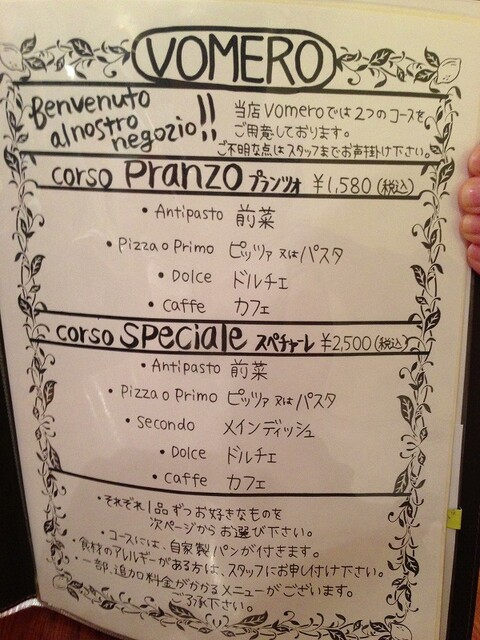 VOMERO
Benvenuto
al nostro
negozio!!
当店Vomeroでは2つのコースを
ご用意しております。
ご不明な点はスタッフまでお声掛け下さい。
corso Pranzo プランツォ ¥1,580(税込)
・Antipasto 前菜
・Pizza o Primo ピッツァ又はパスタ
・Dolce ドルチェ
・Caffe カフェ
corso speciale スペチャーレ ¥2,500(税込)
・Antipasto 前菜
・Pizza o Primo ピッツァ又はパスタ
・Secondo メインディッシュ
・Dolce ドルチェ
・Caffe カフェ
・それぞれ1品ずつお好きなものを
次ページからお選び下さい。
・コースには、自家製パンが付きます。
・食材のアレルギーがある方は、スタッフにお申し付け下さい。
・一部、追加料金がかかるメニューがございます。
ご了承下さい。